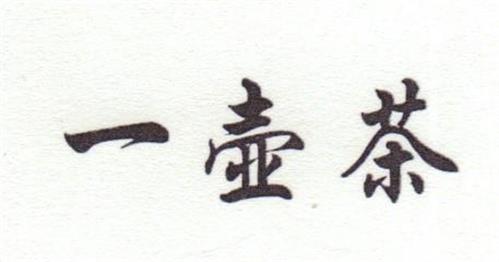 一壶茶